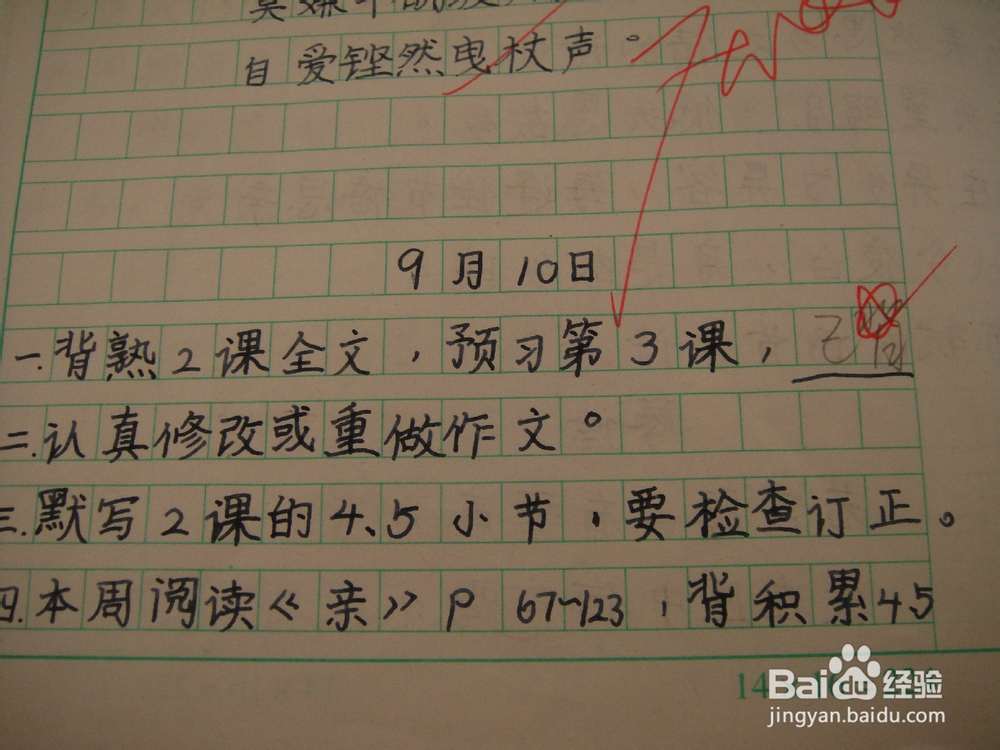 自爱铿然曳杖声。
9月10日
一.背熟2课全文，预习第3课，已背
二.认真修改或重做作文。
三.默写2课的4、5小节，要检查订正。
四.本周阅读《亲》P 67~123，背积累45
Baidu经验
jingyan.baidu.com